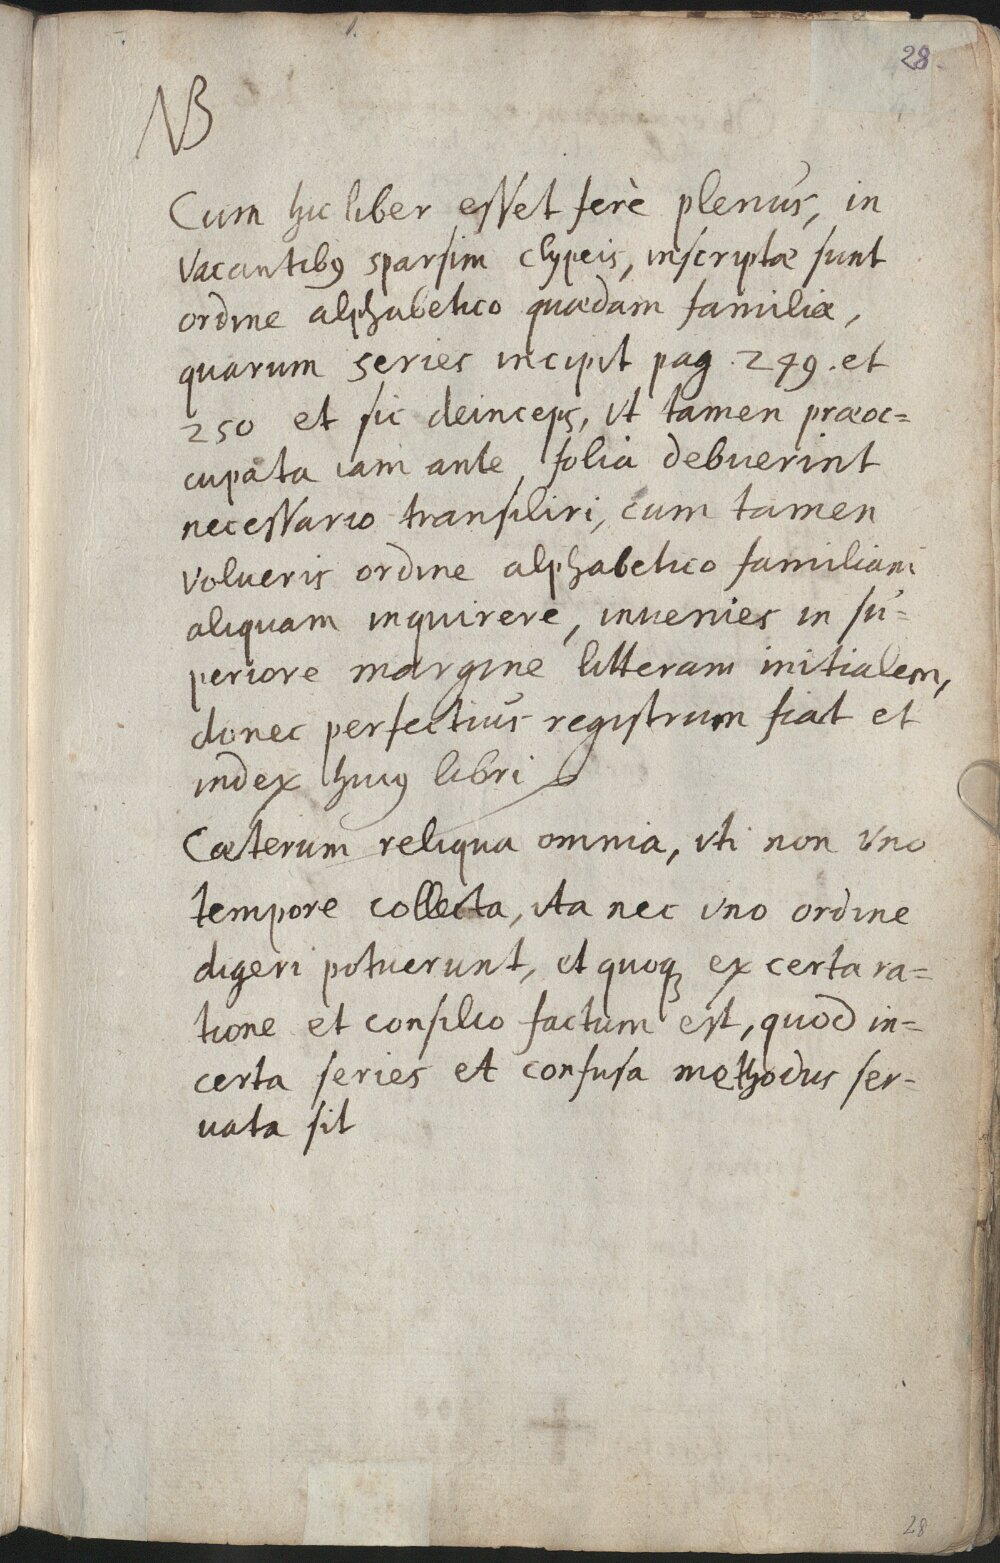 28.
NB
Cum hic liber esset ferè plenus, in
vacantib9 sparsim clypeis, inscriptæ sunt
ordine alphabetico quædam familiæ,
quarum series incipit pag. 249. et
250 et sic deinceps, vt tamen præoc=
cupata iam ante folia debuerint
necessario transiliri, cum tamen
volueris ordine alphabetico familiam
aliquam inquirere, inuenies in su=
periore margine litteram initialem,
donec perfectius registrum fiat et
index hui9 libri
Cæterum reliqua omnia, vti non vno
tempore collecta, ita nec vno ordine
digeri potuerunt, et quoq ex certa ra=
tione et consilio factum est, quod in=
certa series et confusa methodus ser=
uata sit
28